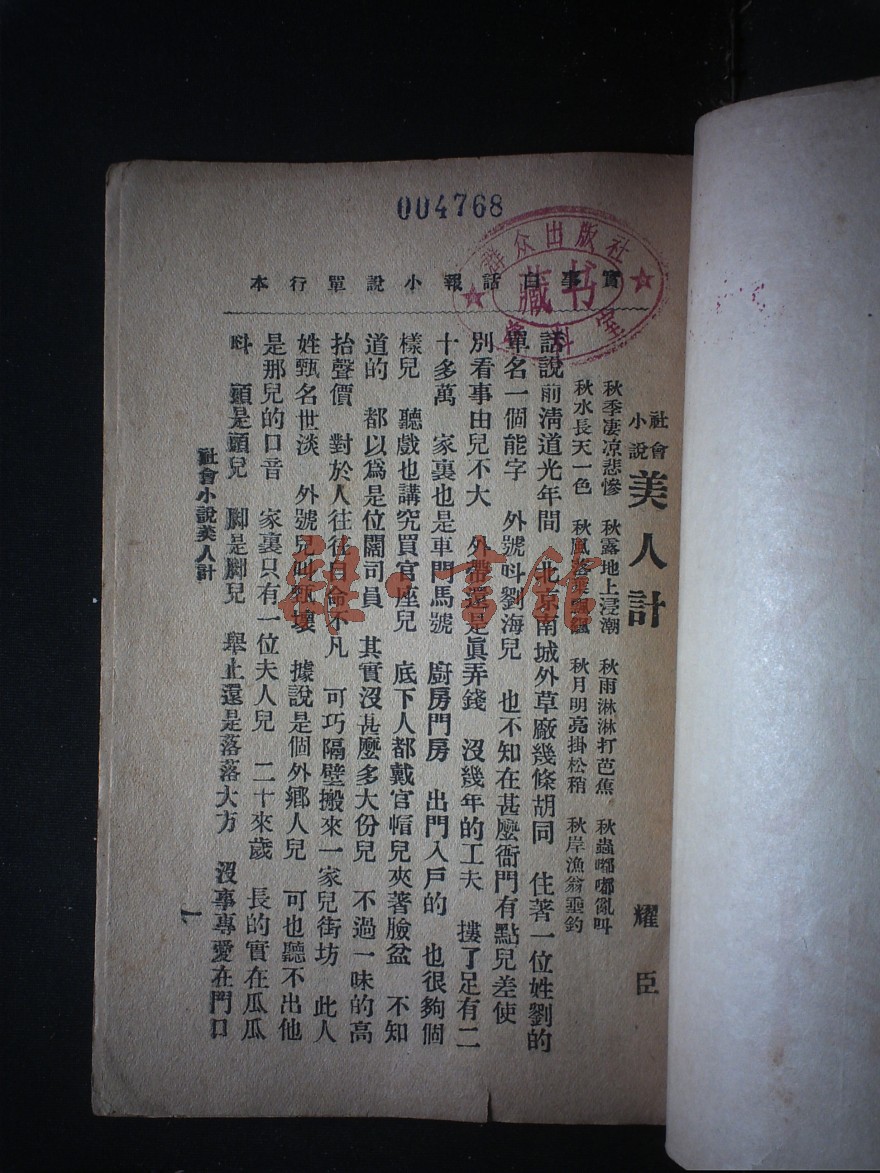 004768
群众出版社
藏书
室
實事白話報小說單行本
社會小說 美人計 耀臣
秋季凄凉悲慘 秋露地上浸潮 秋雨淋淋打芭焦 秋蟲嘟嘟亂叫
秋水長天一色 秋風落葉飄飄 秋月明亮掛松稍 秋岸漁翁垂釣
話說前淸道光年間 北京南城外草廠幾條胡同 住著一位姓劉的
單名一個能字 外號呌劉海兒 也不知在甚麼衙門有點兒差使
別看事由兒不大 外帶還是眞弄錢 沒幾年的工夫 摟了足有二
十多萬 家裏也是車門馬號 廚房門房 出門入戶的 也很夠個
樣兒 聽戲也講究買官座兒 底下人都戴官帽兒夾著臉盆 不知
道的 都以爲是位闊司員 其實沒甚麼多大份兒 不過一味的高
抬聲價 對於人往往自命不凡 可巧隔壁搬來一家兒街坊 此人
姓甄名世淡 外號兒叫甄壞 據說是個外鄉人兒 可也聽不出他
是那兒的口音 家裏只有一位夫人兒 二十來歲 長的實在瓜瓜
呌 頭是頭兒 脚是脚兒 舉止還是落落大方 沒事專愛在門口
社會小說美人計
一
雜·書館